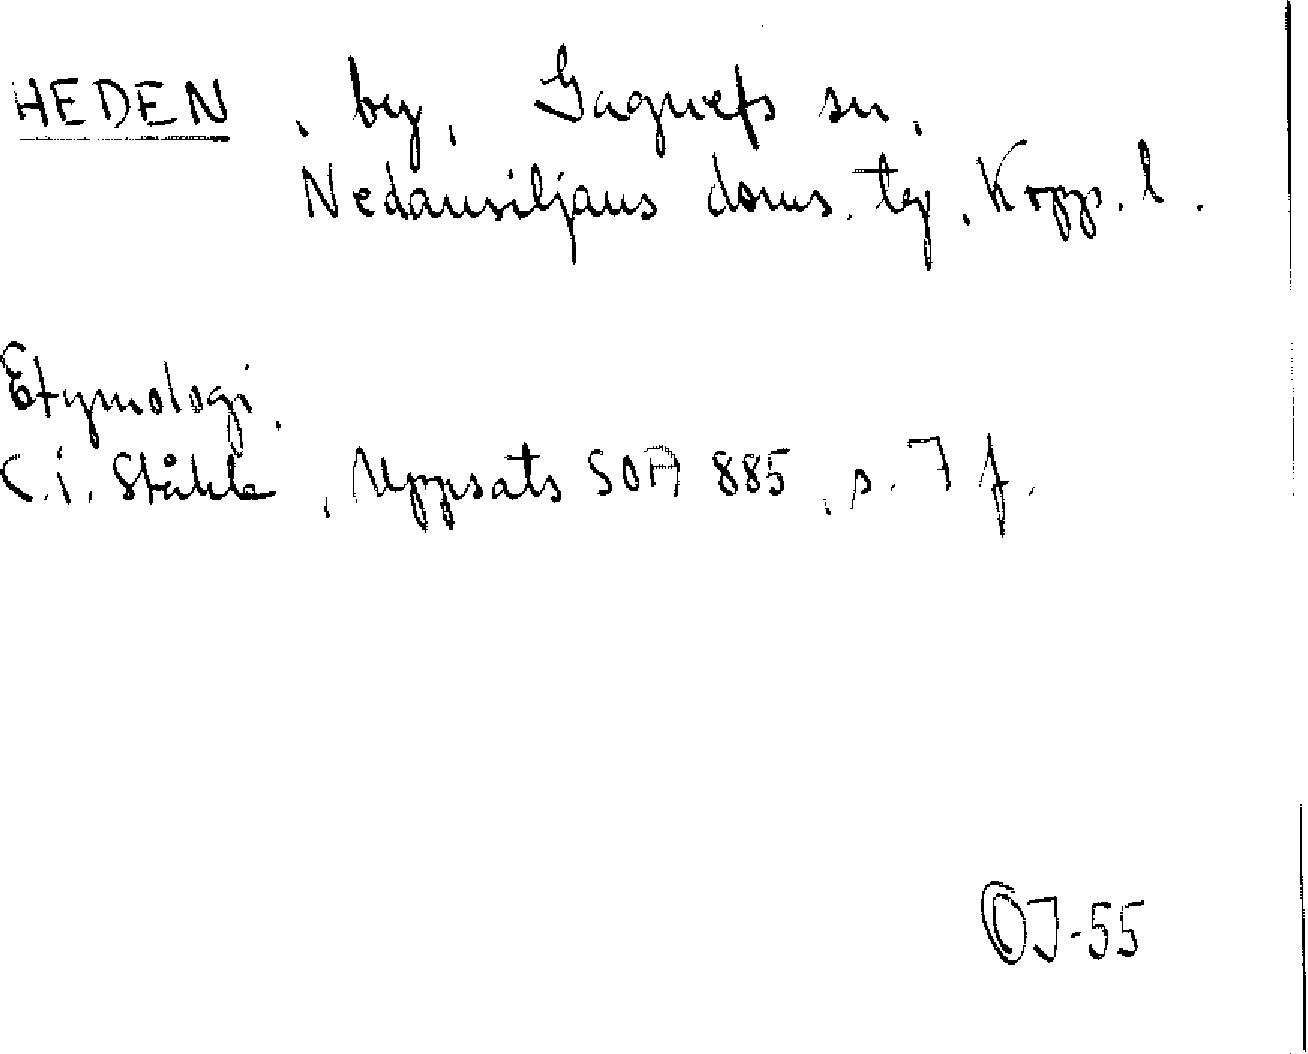 HEDEN, by, Gagnefs sn,
Nedansiljans doms. tg, Kopp. l.
Etymologi.
C. I. Ståhle, Uppsats SOA 885, s. 7 f.
OJ-55